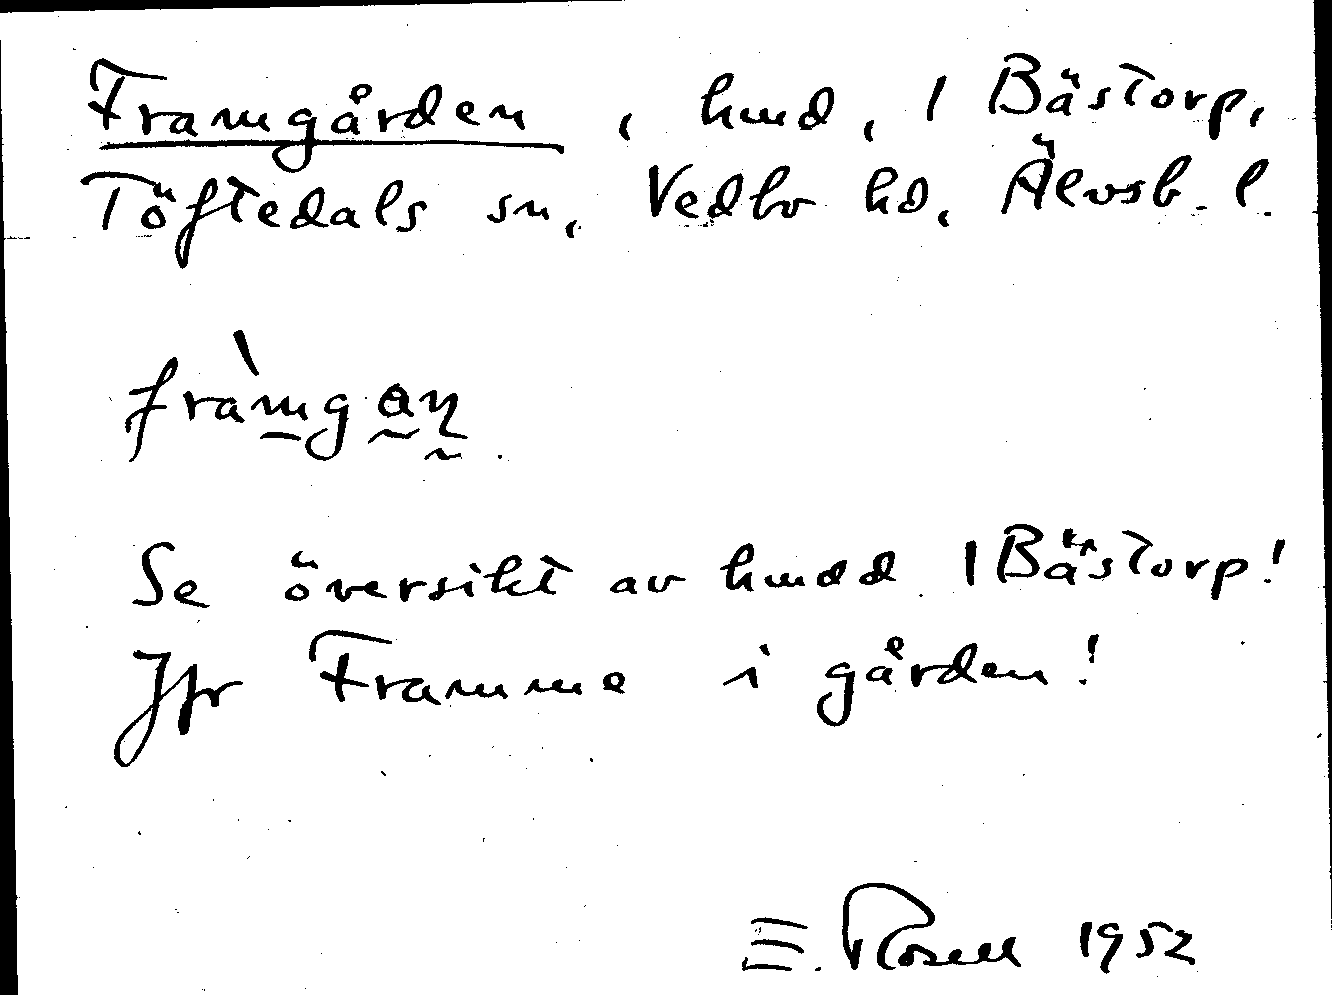 Framgården, hmd, 1 Bästorp,
Töftedals sn, Vedbo hd, Älvsb. l.
fràmgan.
Se översikt av hmdd 1 Bästorp!
Jfr Framme i gården!
E. Rosell 1952